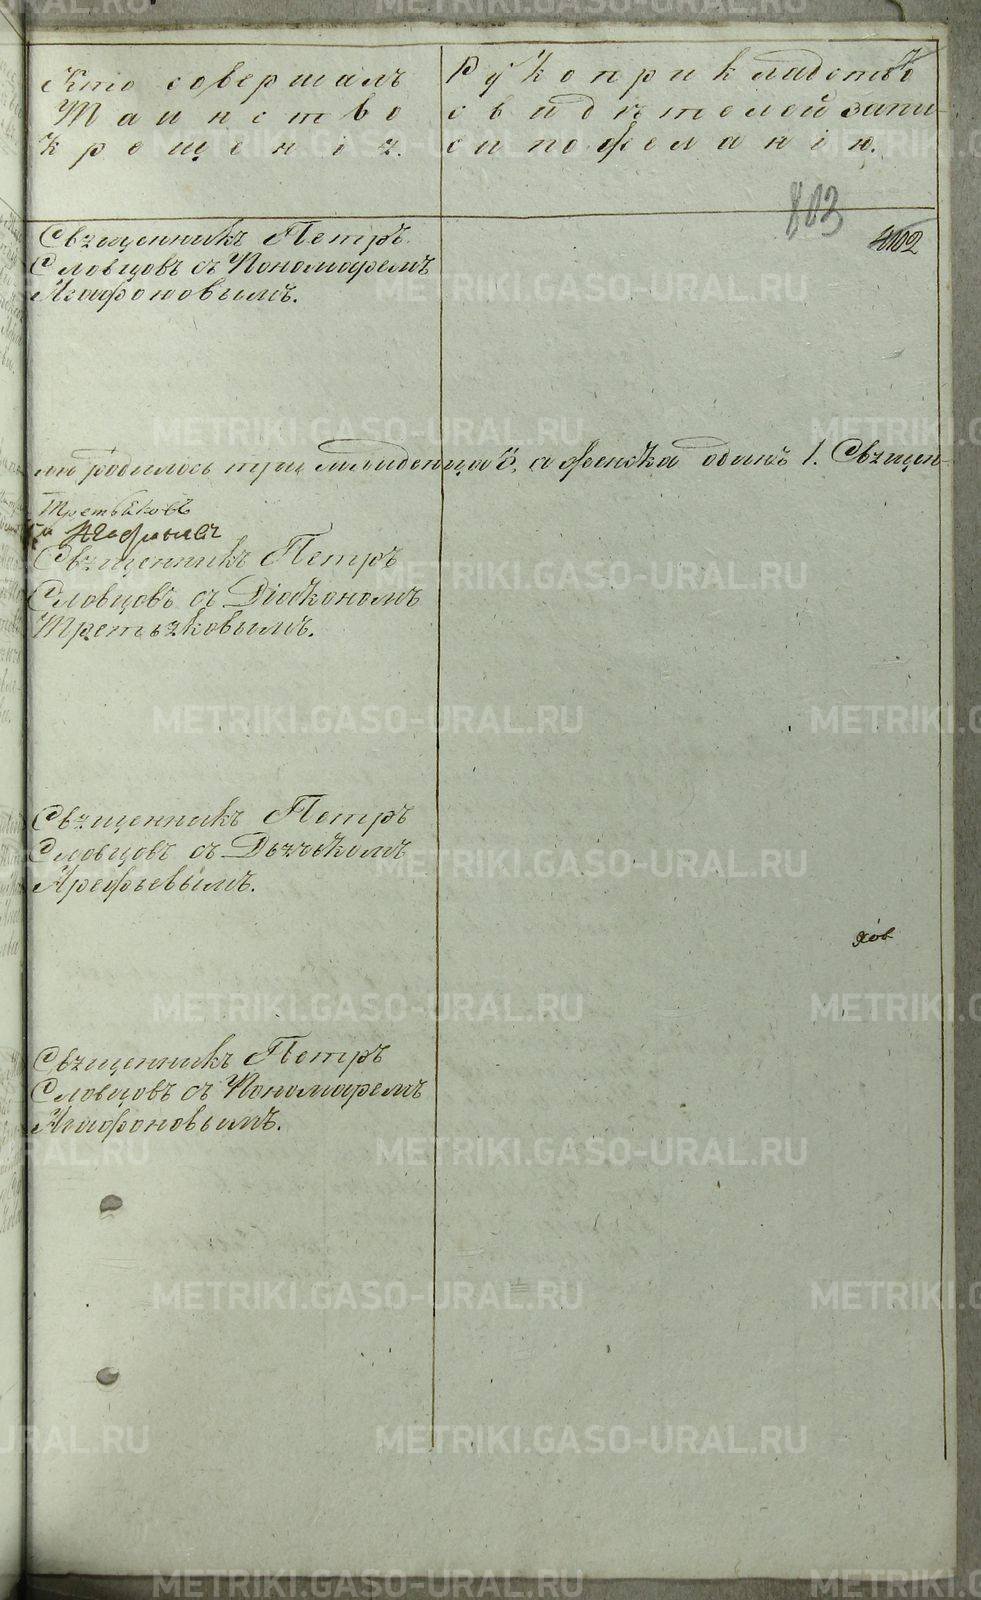 Кто совершалъ
Таинство
Крещенія.
Рукоприкладство
свидѣтелей запи-
си по желанію.
803
4102
Священникъ Петръ
Словцовъ съ Пономаремъ
Агафоновымъ.
ла родилось три младенца 3, а женска одинъ 1. Священ-
Третьяковъ
Священникъ Петръ
Словцовъ съ Діакономъ
Третьяковымъ.
Священникъ Петръ
Словцовъ съ Дьячькомъ
Арефьевымъ.
хов
Священникъ Петръ
Словцовъ съ Пономаремъ
Агафоновымъ.
METRIKI.GASO-URAL.RU